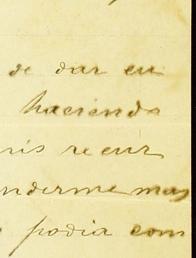 de dar en
hacienda
mis recur
nderme mas
podia com